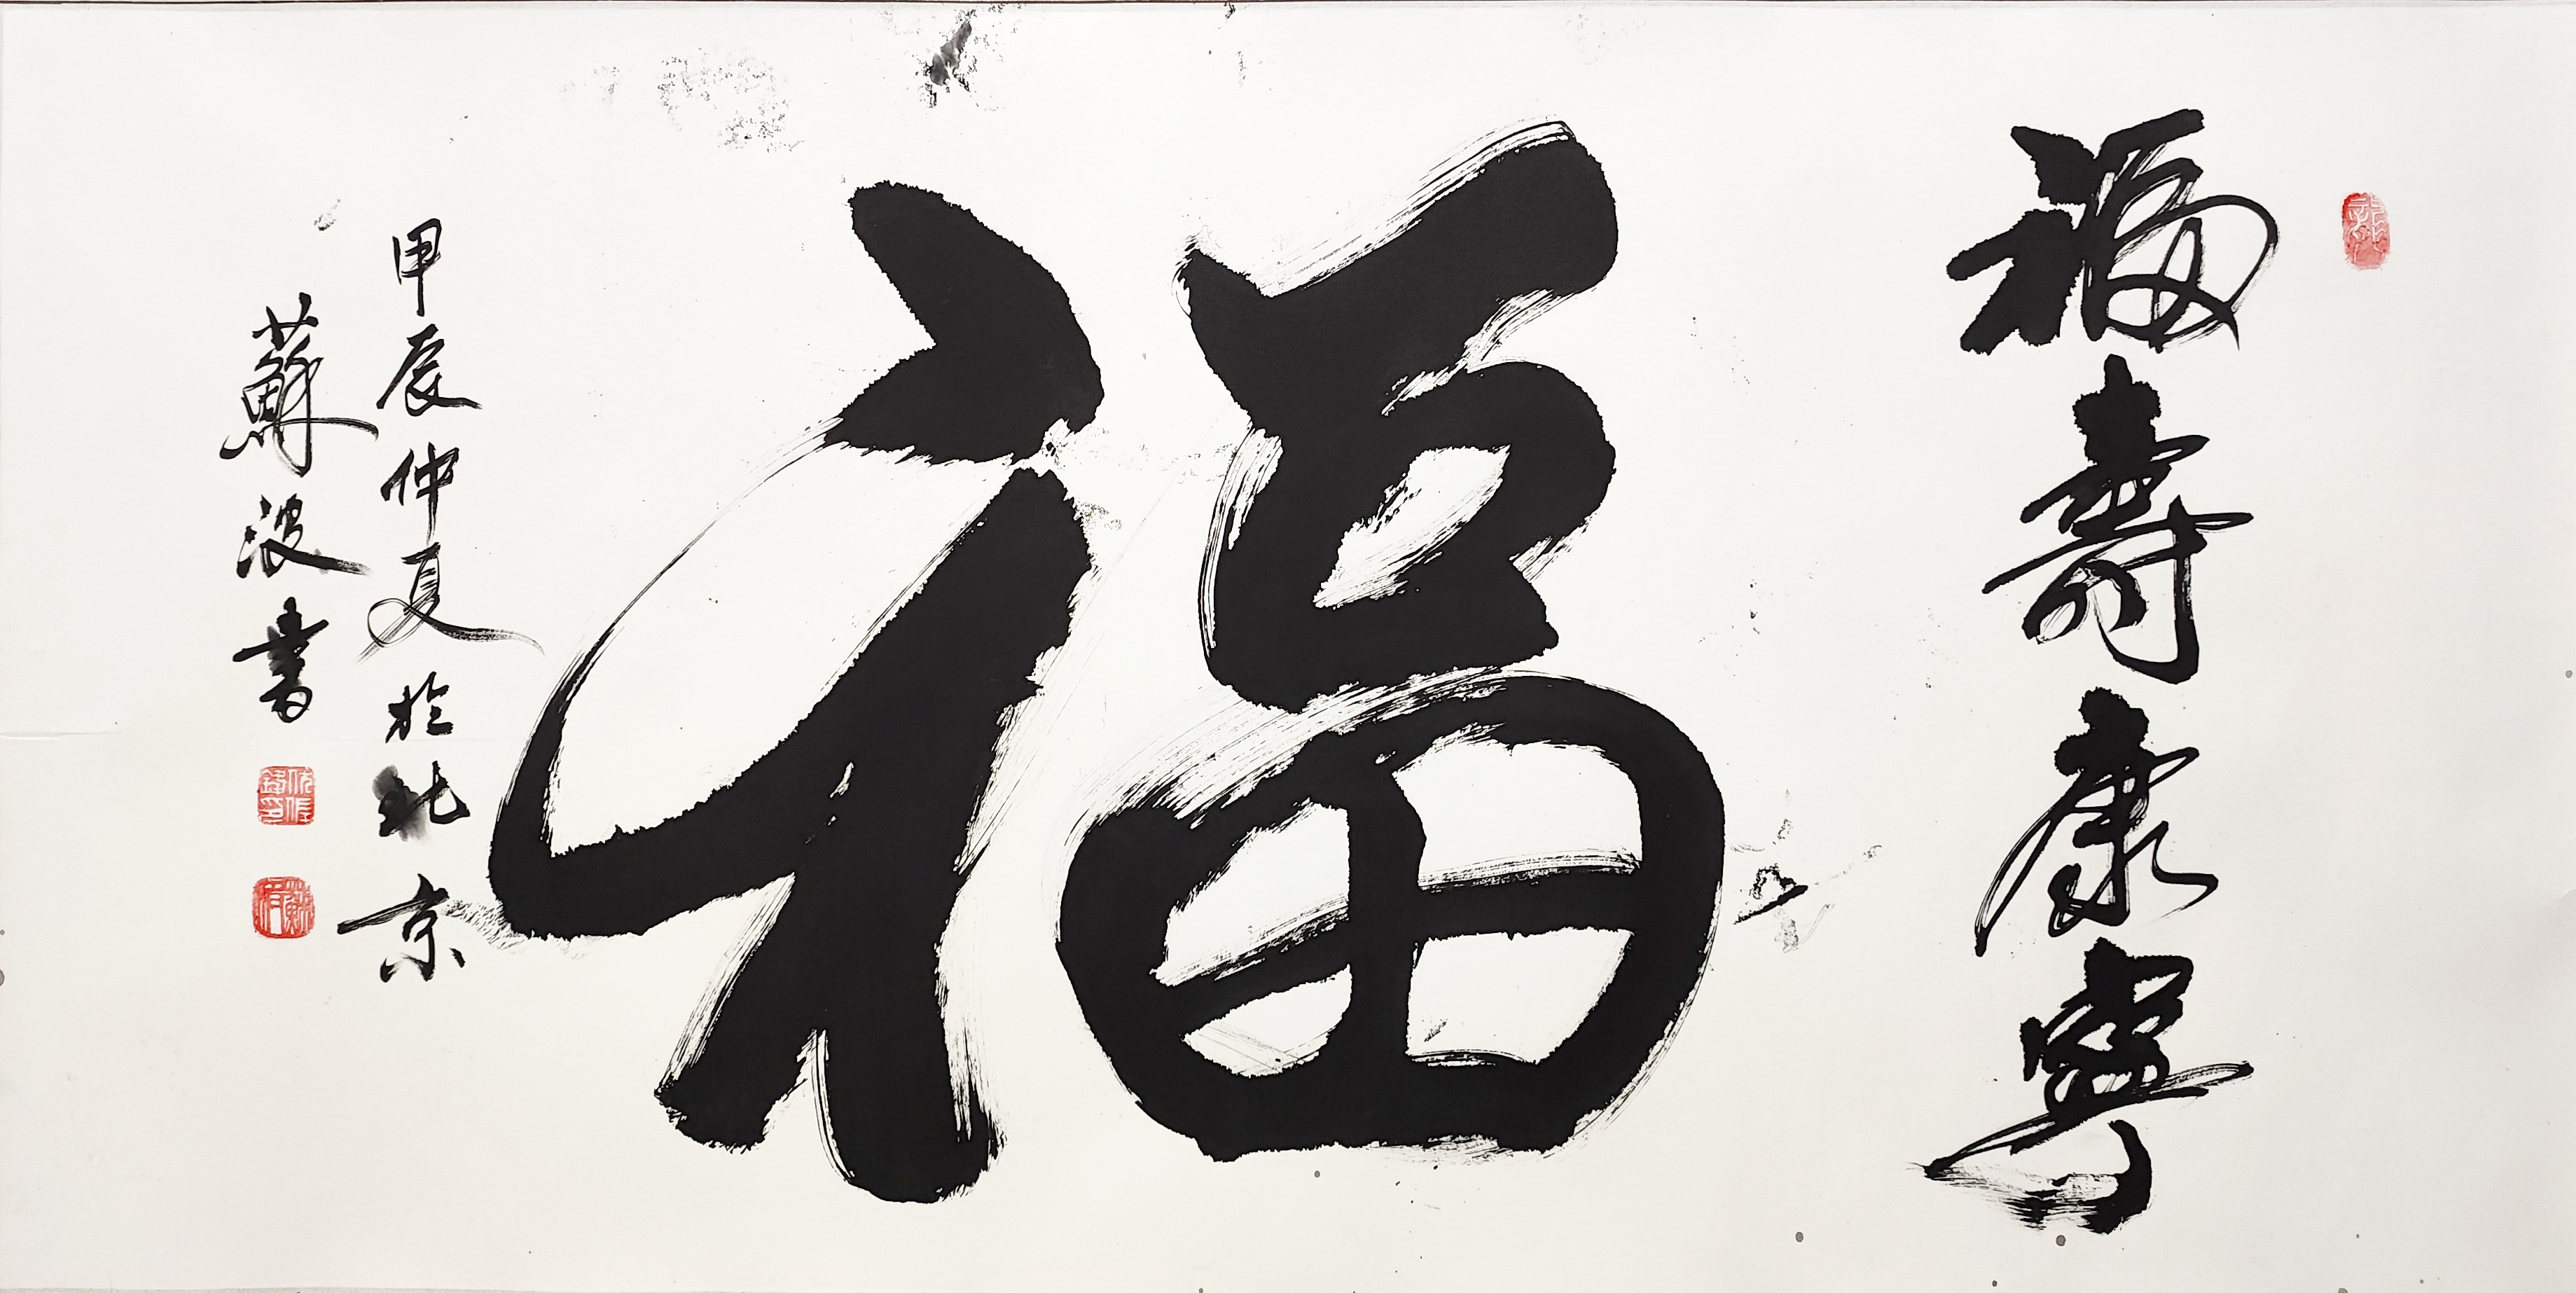 福壽康寧
福
甲辰仲夏於北京
蘇波書